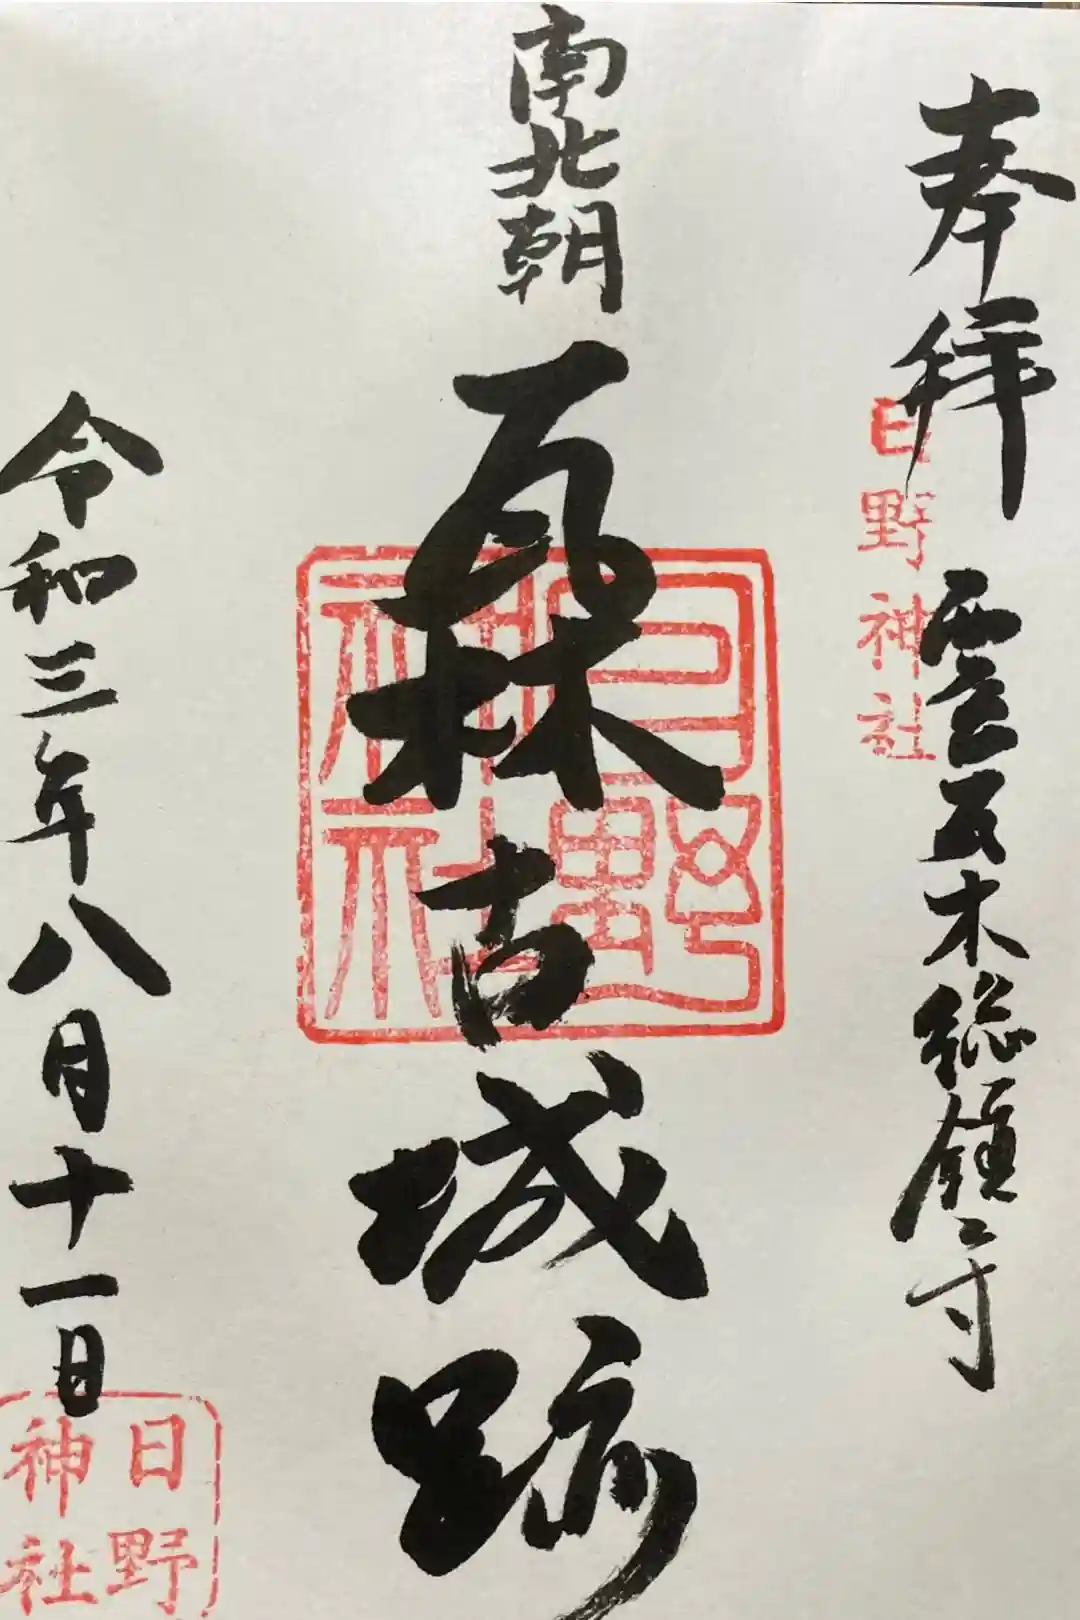 奉拝
日野神社
雲瓦木総鎮守
南北朝
瓦林古城跡
日野神社
令和三年八月十一日
日野神社